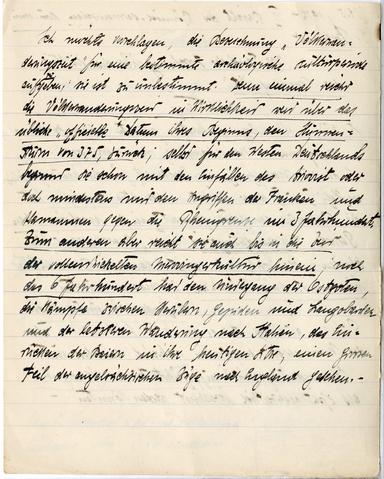 Ich möchte vorschlagen, die Bezeichnung „Völkerwan-
derungszeit" für eine bestimmte archäologische Kulturperiode
aufzugeben; sie ist zu unbestimmt. Denn einmal reicht
die Völkerwanderungszeit in Wirklichkeit weit über das
übliche, „offizielle" Datum ihres Beginns, den Hunnen-
sturm von 375, zurück; selbst für den Westen Deutschlands
beginnt sie schon mit den Einfällen des Ariovist oder
doch mindestens mit den Angriffen der Franken und
Alamannen gegen die Rheingrenze im 3. Jahrhundert.
Zum anderen aber reicht sie auch bis in die Zeit
der vollentwickelten Merowingerkultur hinein; noch
das 6. Jahrhundert hat den Untergang der Ostgoten,
die Kämpfe zwischen Herulern, Gepiden und Langobarden
und der letzteren Wanderung nach Italien, das Ein-
rücken der Baiern in ihre heutigen Sitze, einen grossen
Teil der angelsächsischen Züge nach England gesehen.-